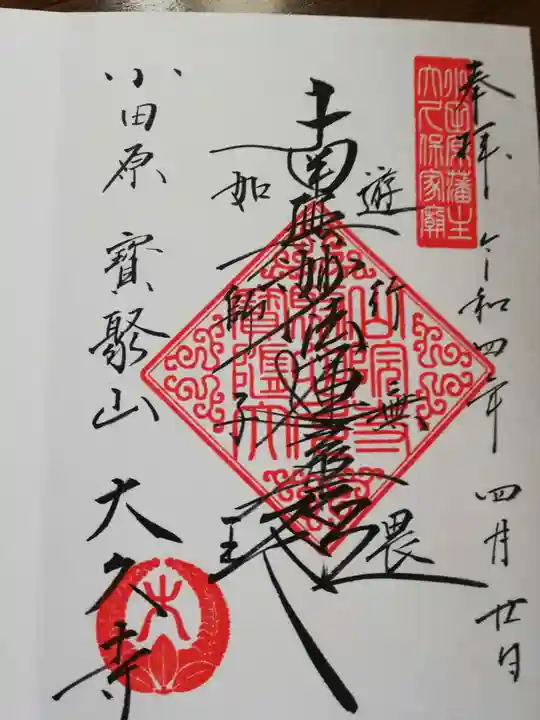 奉拝 令和四年 四月 廿日
小田原藩主
大久保家廟
遊行無畏
南無妙法蓮華経
如師子王
小田原 寶聚山 大久寺